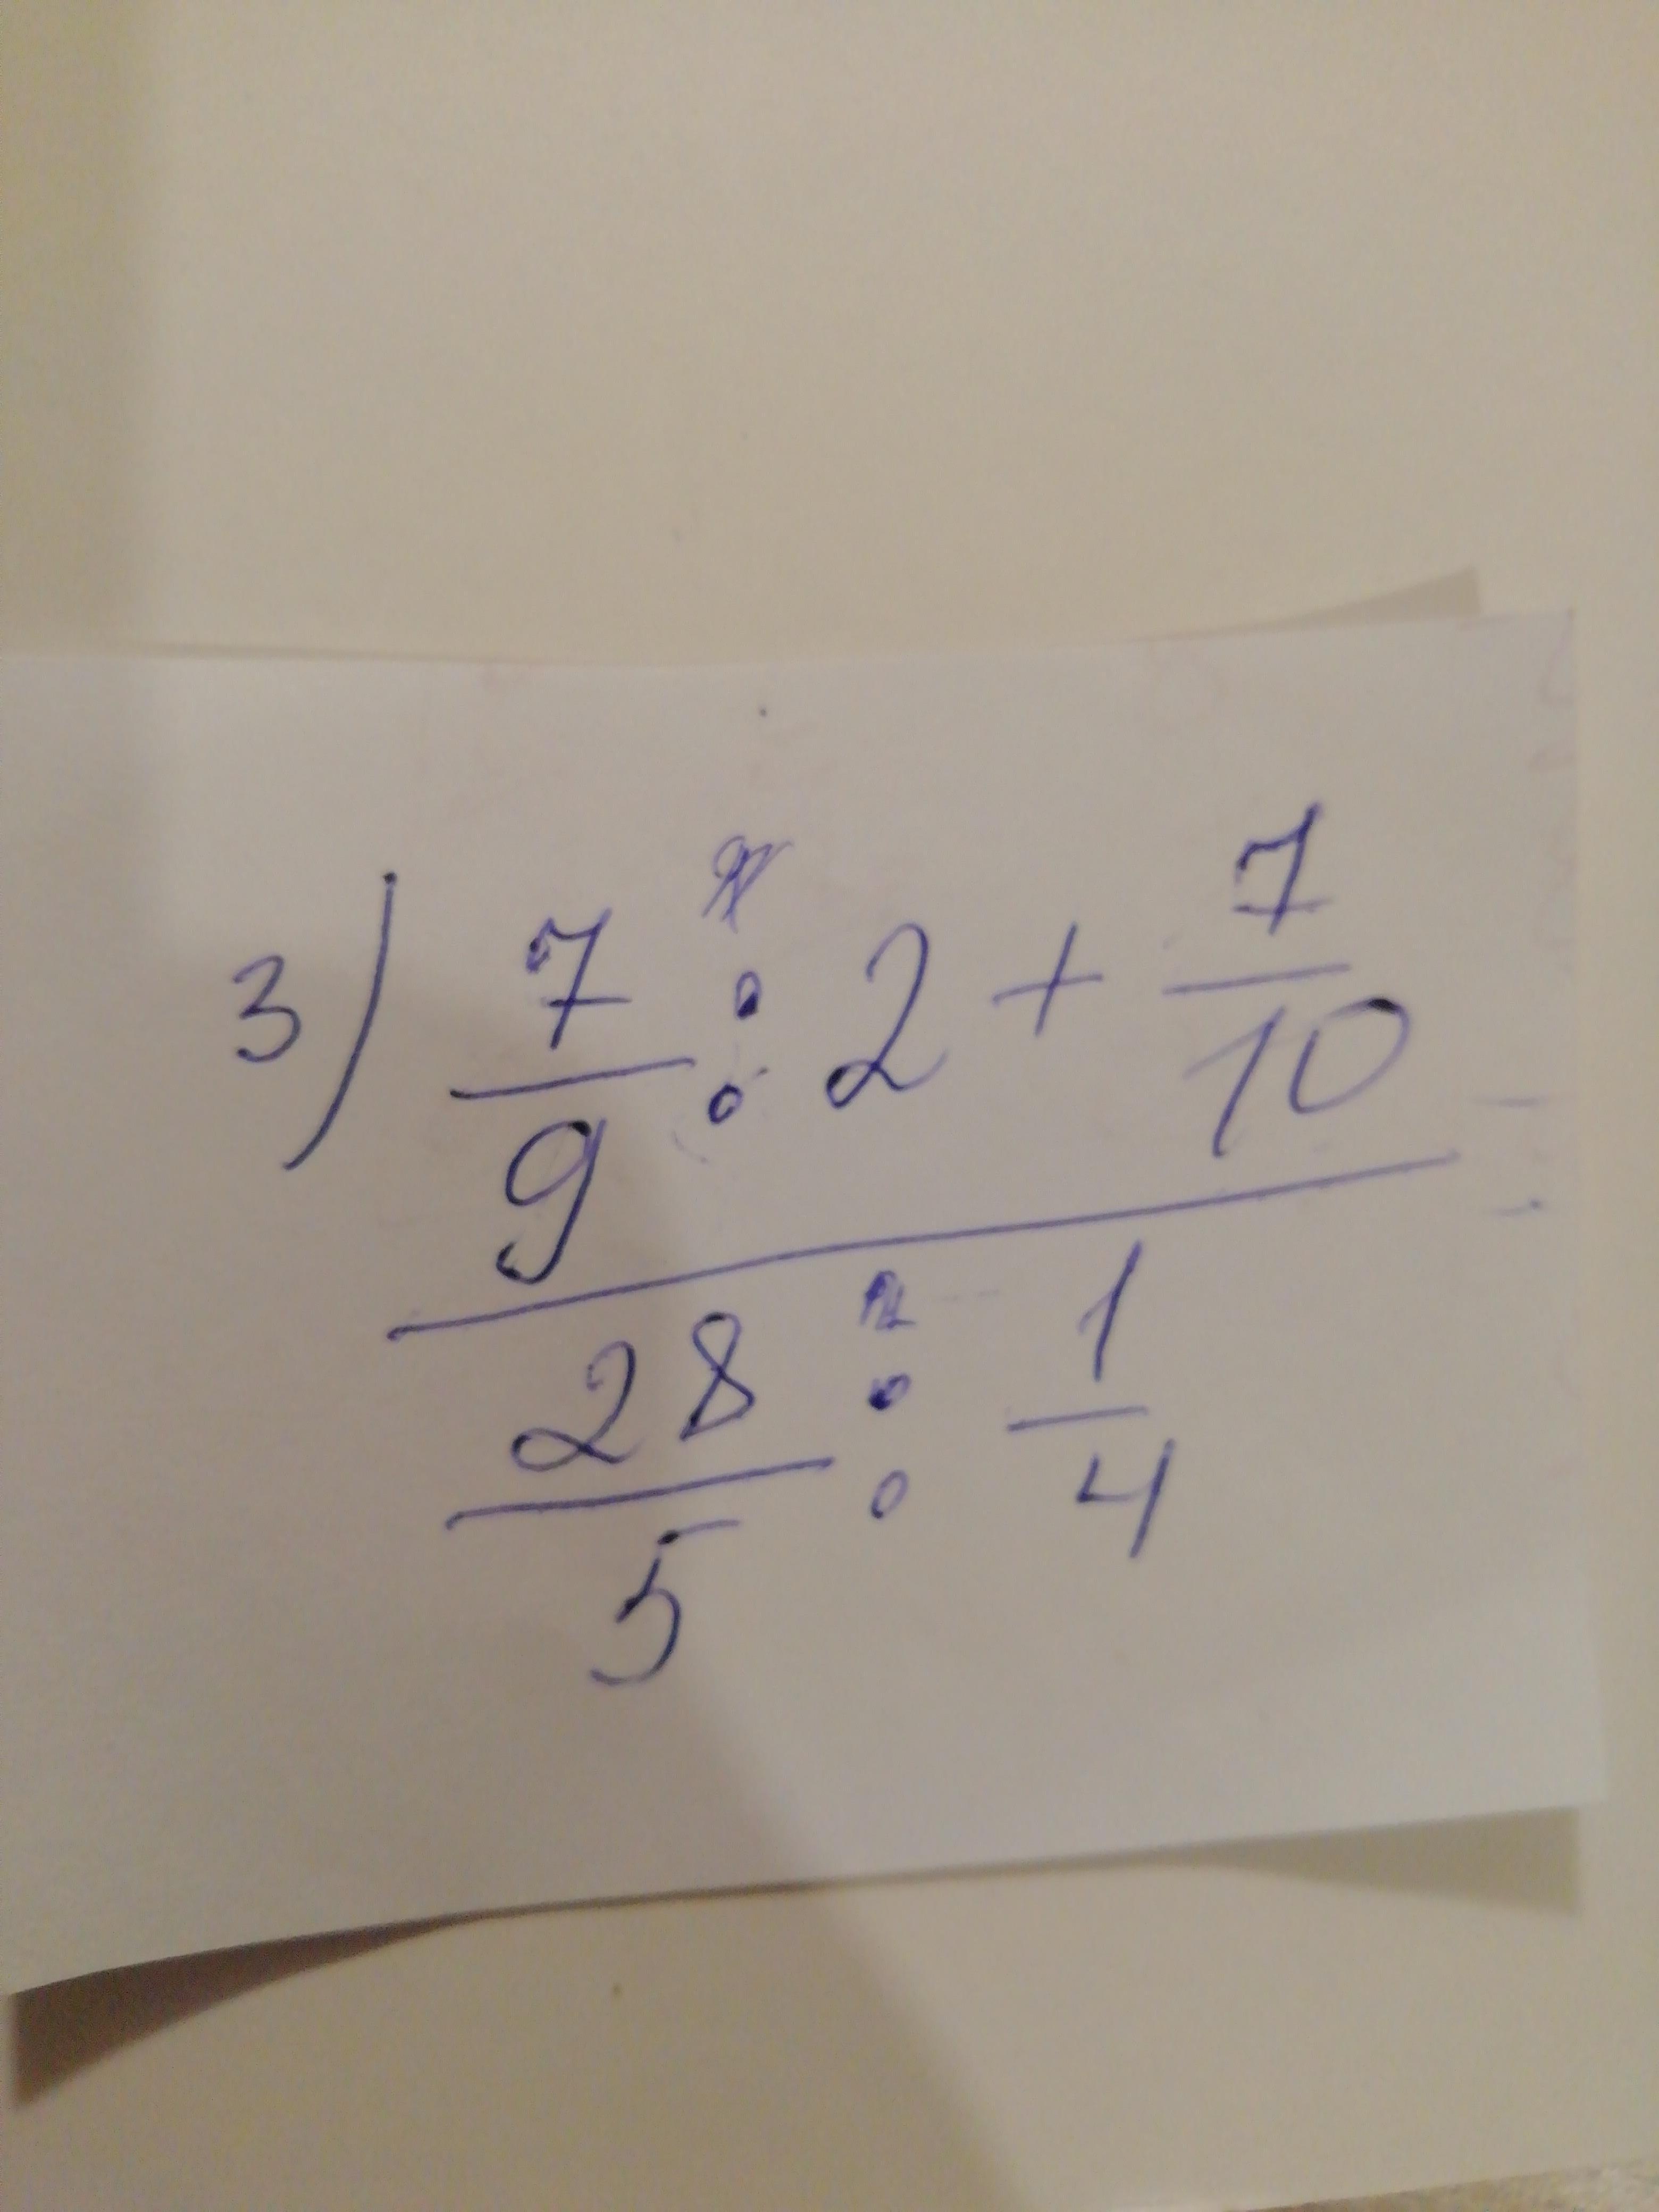 3) 7/9 : 2 + 7/10
28/5 : 1/4